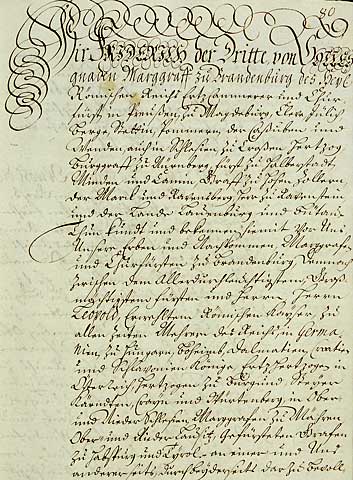 80
Wir FRIDERICH der Dritte von GOTTES
gnaden Marggraff zu Brandenburg des Heyl.
Römischen Reichs Ertz Cammerer und Chur-
fürst, in Preußen, zu Magdeburg, Cleve, Jülich
Berge, Stettin, Pommern, der Caßuben und
Wenden, auch in Schlesien zu Croßen Hertzog
Burggraff zu Nürnberg, Fürst zu Halberstadt
Minden und Camin, Graff zu Hohen Zollern,
der Marck und Ravensberg, Herr zu Ravenstein
und der Lande Lauenburg und Butau
Thun kundt und bekennen hiemit vor Uns
Unsere Erben und Nachkommen, Marggrafen
und Churfürsten zu Brandenburg, Demnach
zwischen dem Allerdurchleuchtigsten, Groß-
mächtigsten Fürsten und Herrn, Herrn
Leopold, Erwehltem Römischen Kayser, zu
allen Zeiten Mehrern des Reichs, in Germa-
nien, zu Hungarn, Böheimb, Dalmatien, Croatien
und Sclavonien Könige, Ertzhertzogen in
Österreich, Hertzogen zu Burgund, Steyer
Kärndten, Crain und Würtenberg, in Ober-
und Nieder Schlesien, Marggrafen zu Mähren
Ober- und Nieder Laußitz, Gefürsteten Grafen
zu Habspurg und Tyrol an einer und Uns
anderer seits, durch beyderseits dar zu bevoll-